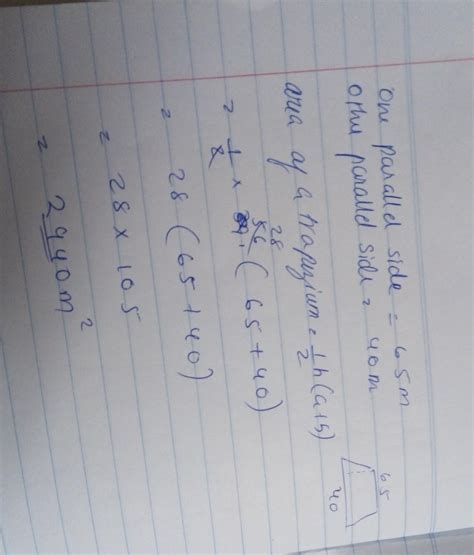 One parallel side = 65m
Other parallel side = 40m
65
40
area of a trapezium = 1/2 h(a+b)
28
= 1/2 × 56 (65+40)
= 28 (65+40)
= 28 × 105
= 2940m²